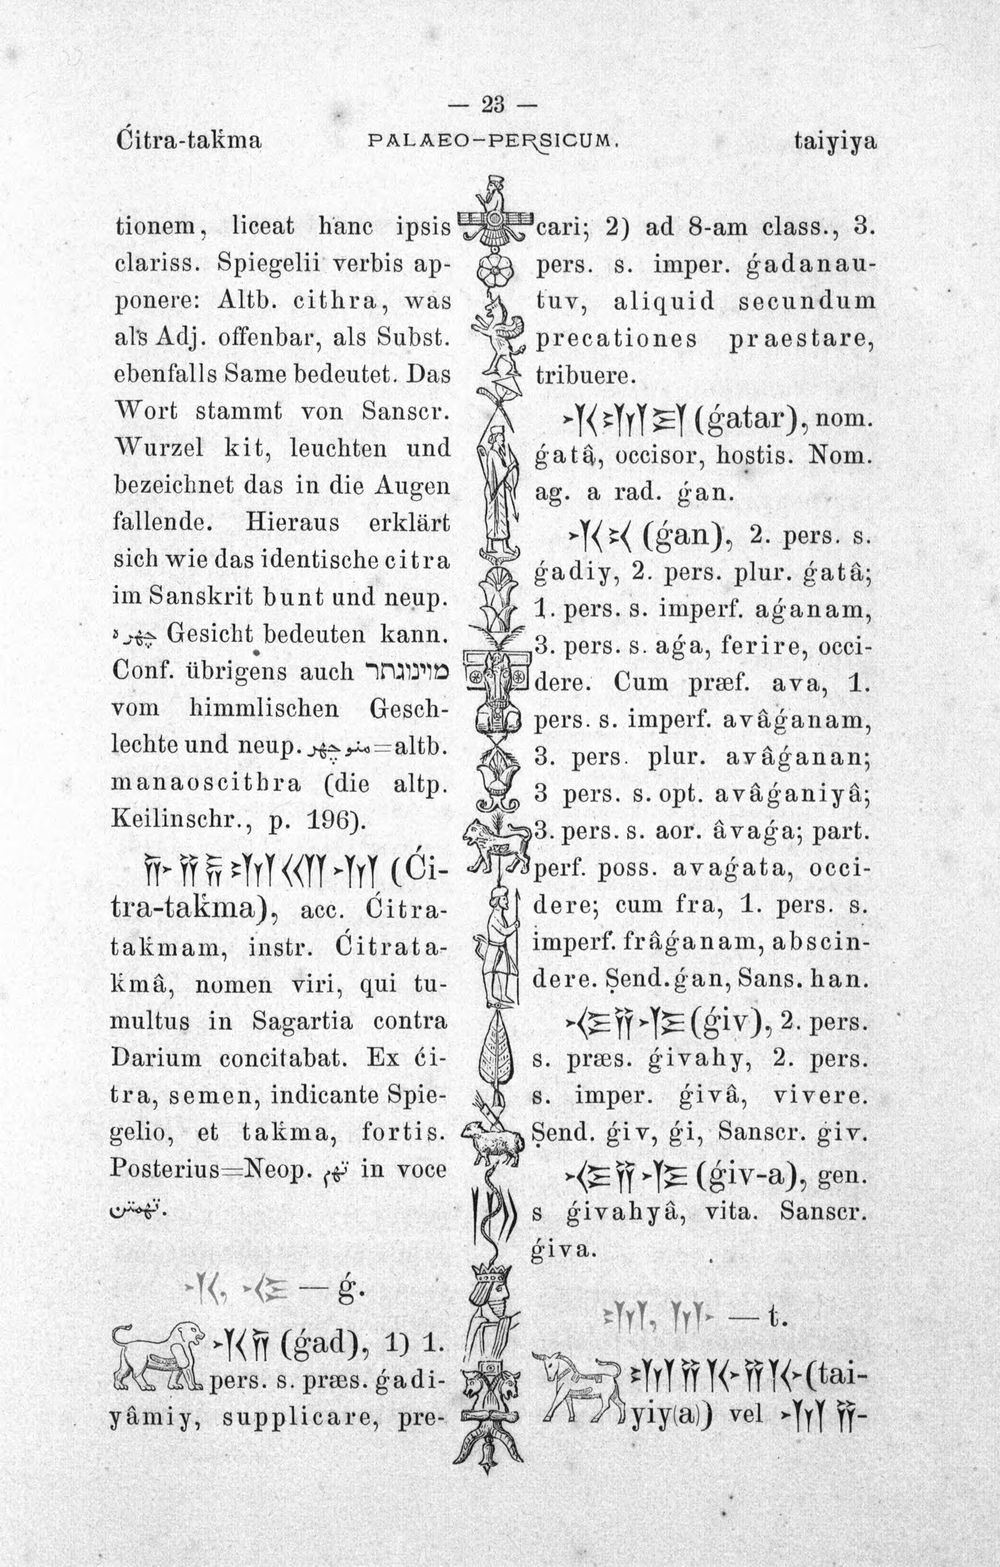 — 23 —
Ćitra-takma PALAEO-PERSICUM. taiyiya
tionem, liceat hanc ipsis
clariss. Spiegelii verbis ap-
ponere: Altb. cithra, was
als Adj. offenbar, als Subst.
ebenfalls Same bedeutet. Das
Wort stammt von Sanscr.
Wurzel kit, leuchten und
bezeichnet das in die Augen
fallende. Hieraus erklärt
sich wie das identische citra
im Sanskrit bunt und neup.
چهره Gesicht bedeuten kann.
Conf. übrigens auch
vom himmlischen Gesch-
lechte und neup. منوچهر=altb.
manaoscithra (die altp.
Keilinschr., p. 196).
(Ći-
tra-takma), acc. Ćitra-
takmam, instr. Ćitrata-
kmâ, nomen viri, qui tu-
multus in Sagartia contra
Darium concitabat. Ex ći-
tra, semen, indicante Spie-
gelio, et takma, fortis.
Posterius=Neop. تهم in voce
تهمتن.
— ǵ.
(ǵad), 1) 1.
pers. s. præs. ǵadi-
yâmiy, supplicare, pre-
cari; 2) ad 8-am class., 3.
pers. s. imper. ǵadanau-
tuv, aliquid secundum
precationes praestare,
tribuere.
(ǵatar), nom.
ǵatâ, occisor, hostis. Nom.
ag. a rad. ǵan.
(ǵan), 2. pers. s.
ǵadiy, 2. pers. plur. ǵatâ;
1. pers. s. imperf. aǵanam,
3. pers. s. aǵa, ferire, occi-
dere. Cum præf. ava, 1.
pers. s. imperf. avâǵanam,
3. pers. plur. avâǵanan;
3 pers. s. opt. avâǵaniyâ;
3. pers. s. aor. âvaǵa; part.
perf. poss. avaǵata, occi-
dere; cum fra, 1. pers. s.
imperf. frâǵanam, abscin-
dere. Șend. ǵan, Sans. han.
(ǵiv), 2. pers.
s. præs. ǵivahy, 2. pers.
s. imper. ǵivâ, vivere.
Șend. ǵiv, ǵi, Sanscr. ǵiv.
(ǵiv-a), gen.
s ǵivahyâ, vita. Sanscr.
ǵiva.
— t.
(tai-
yiy(a)) vel